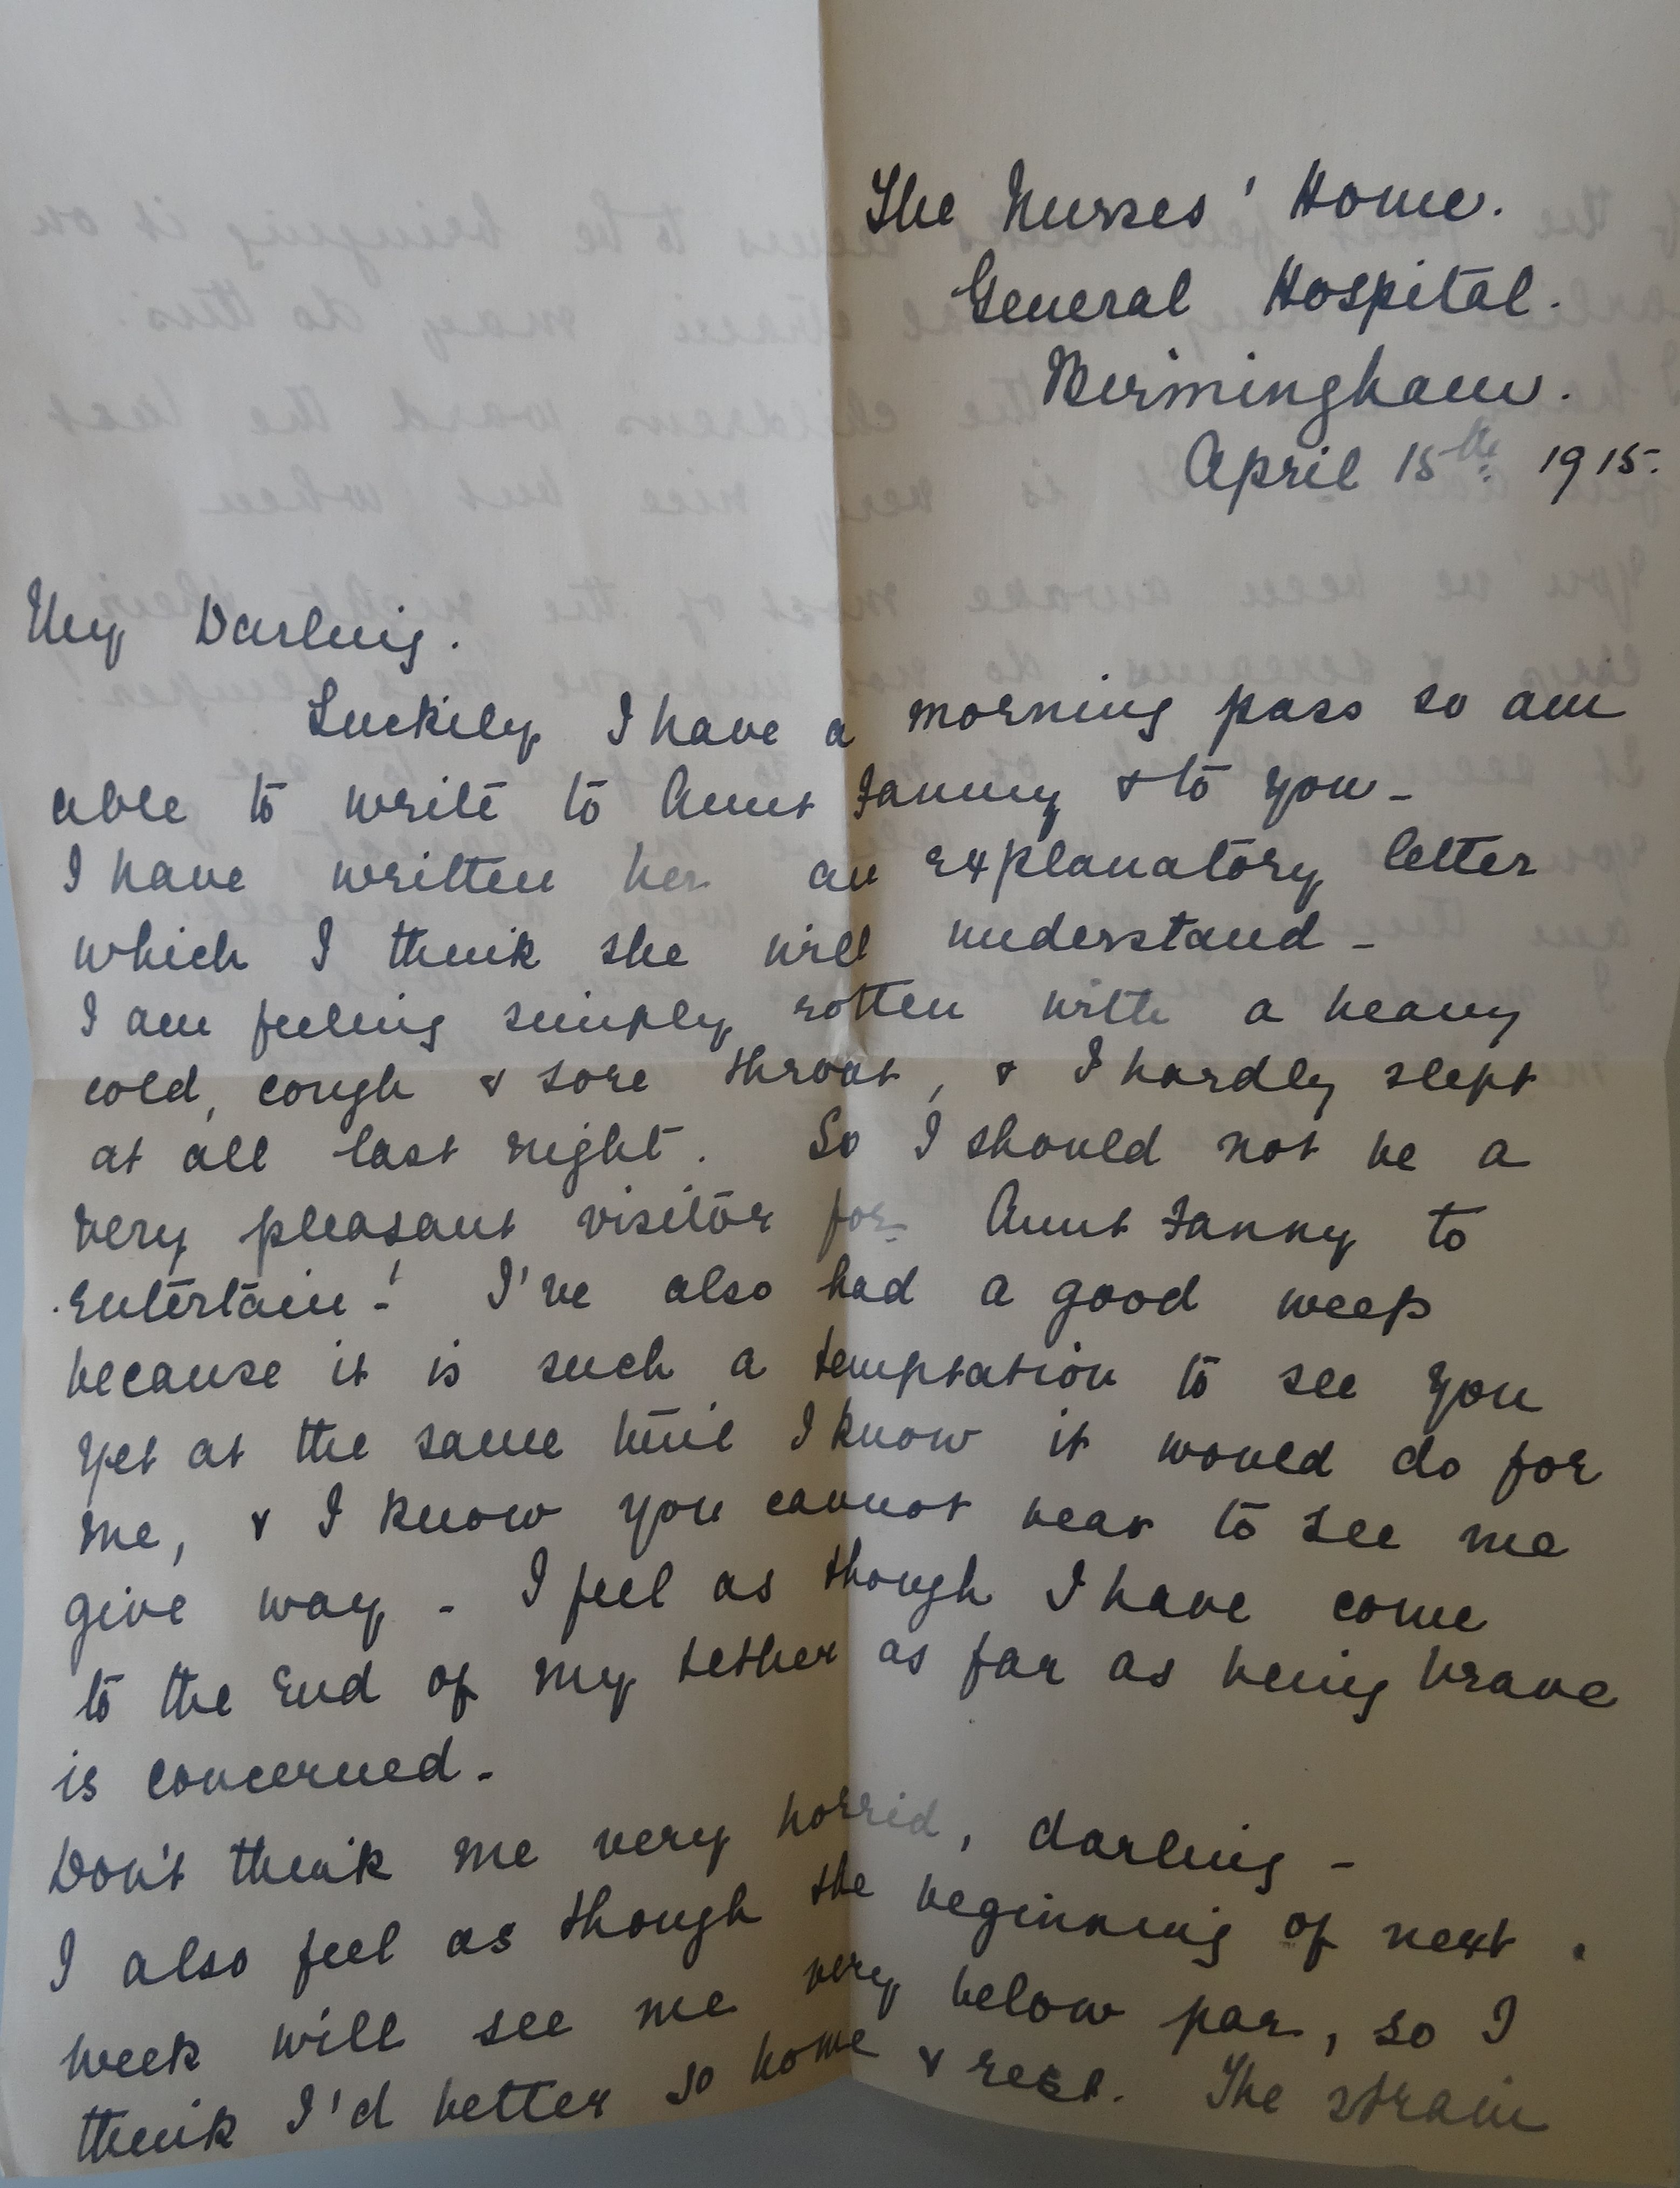 The Nurses' Home.
General Hospital.
Birmingham.
April 15th. 1915.
My Darling.
Luckily I have a morning pass so am
able to write to Aunt Fanny & to you -
I have written her an explanatory letter
which I think she will understand -
I am feeling simply rotten with a heavy
cold, cough & sore throat, & I hardly slept
at all last night. So I should not be a
very pleasant visitor for Aunt Fanny to
entertain! I've also had a good weep
because it is such a temptation to see you
yet at the same time I know it would do for
me, & I know you cannot bear to see me
give way - I feel as though I have come
to the end of my tether as far as being brave
is concerned -
Don't think me very horrid, darling -
I also feel as though the beginning of next
week will see me very below par, so I
think I'd better so home & rest. The strain